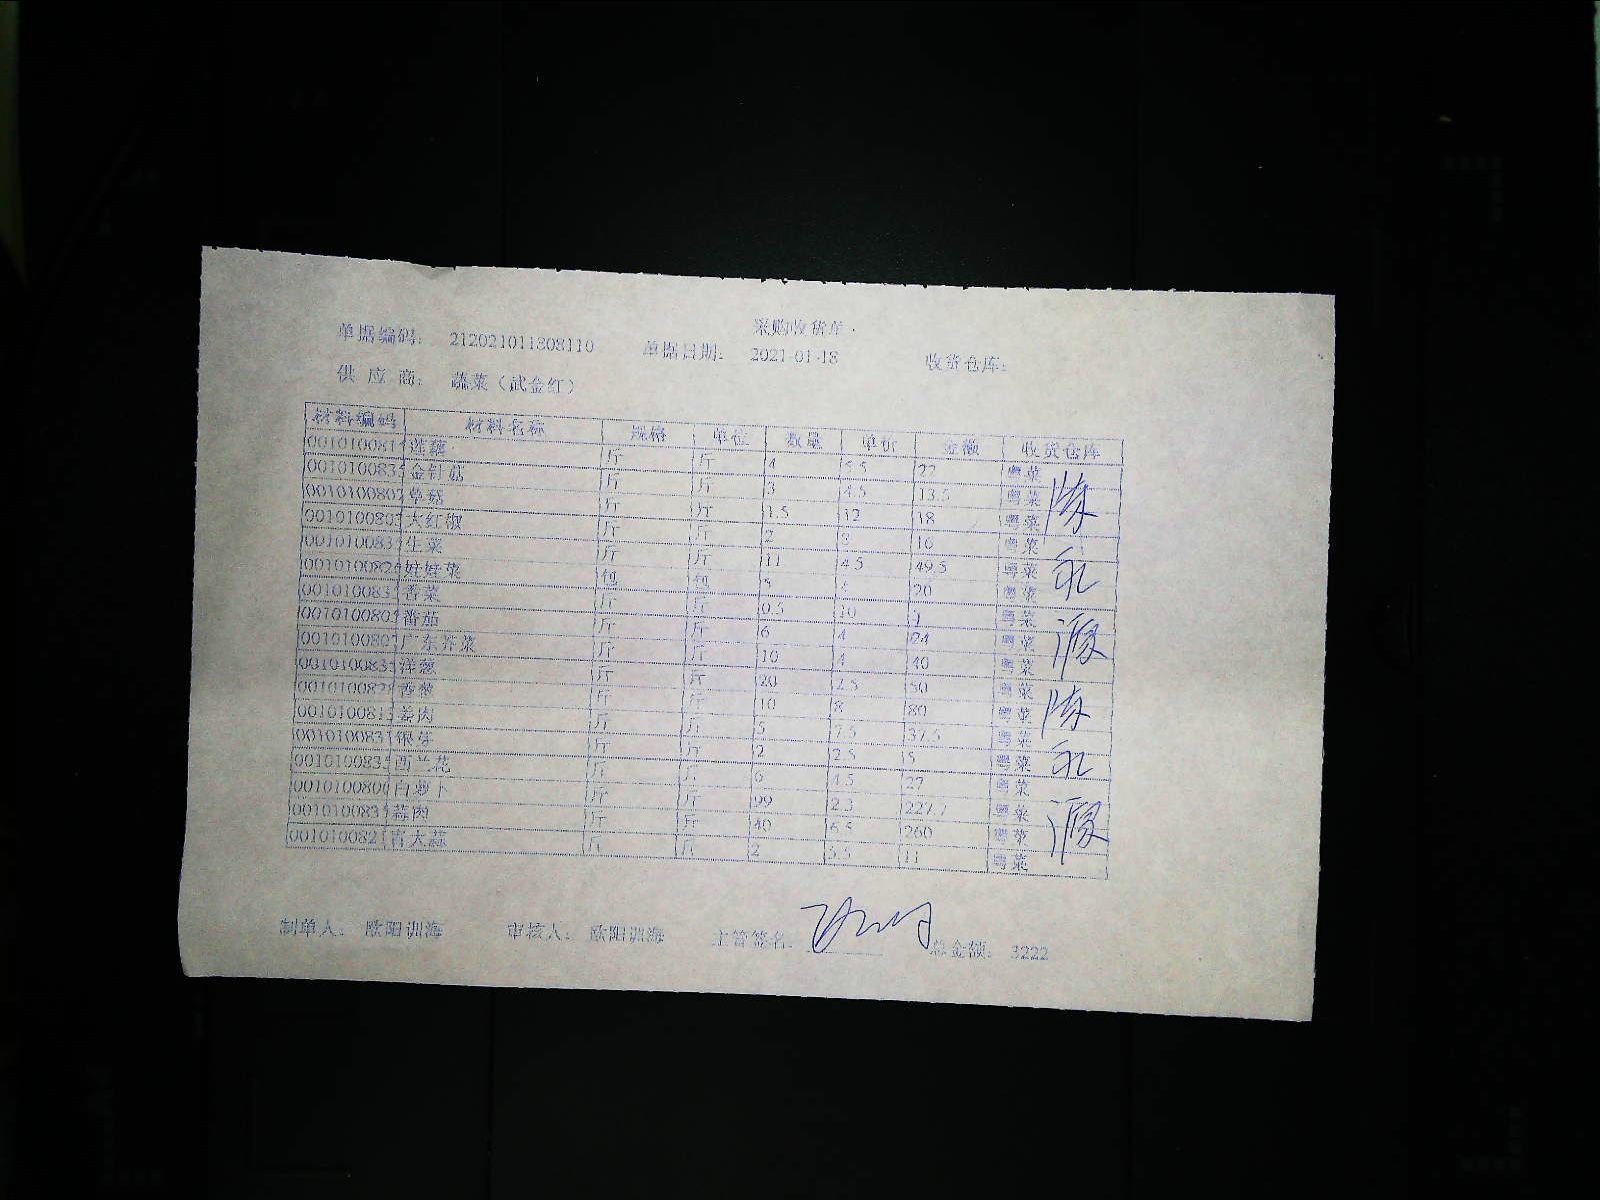 采购收货单
单据编码： 212021011808110 单据日期： 2021-01-18 收货仓库：
供 应 商： 蔬菜（武金红）
材料编码 材料名称 规格 单位 数量 单价 金额 收货仓库
001010081 莲藕 斤 斤 4 5.5 22 粤菜
001010083 金针菇 斤 斤 3 4.5 13.5 粤菜
001010080 草菇 斤 斤 1.5 12 18 粤菜
001010080 大红椒 斤 斤 2 8 16 粤菜
001010083 生菜 斤 斤 11 4.5 49.5 粤菜
001010082 娃娃菜 包 包 20 粤菜
001010083 香菜 斤 斤 0.5 10 粤菜
001010080 番茄 斤 斤 6 4 24 粤菜
001010080 广东芥菜 斤 斤 10 4 40 粤菜
001010083 洋葱 斤 斤 20 2.5 50 粤菜
001010082 香葱 斤 斤 10 8 80 粤菜
001010081 姜肉 斤 斤 5 7.5 37.5 粤菜
001010083 银芽 斤 斤 2 2.5 5 粤菜
001010083 西兰花 斤 斤 6 4.5 27 粤菜
001010080 白萝卜 斤 斤 99 2.3 227.7 粤菜
001010083 蒜肉 斤 斤 40 6.5 260 粤菜
001010082 青大蒜 斤 斤 2 5.5 11 粤菜
陈
永
源
陈
永
源
制单人： 欧阳训海 审核人： 欧阳训海 主管签名： 总金额： 3222